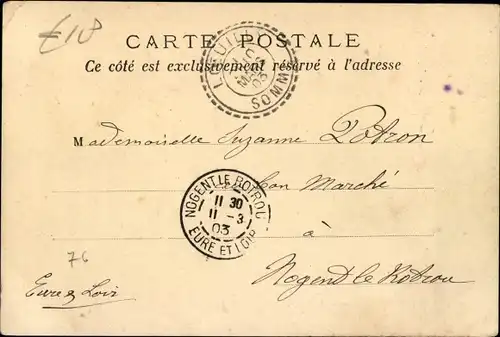 €18
CARTE POSTALE
Ce côté est exclusivement réservé à l'adresse
LŒUILLY
MARS
03
SOMME
Mademoiselle Suzanne Potron
Bon Marché
à
Nogent le Rotrou
Eure & Loir
NOGENT-LE-ROTROU
11 30
11 -3
03
EURE ET LOIR
76